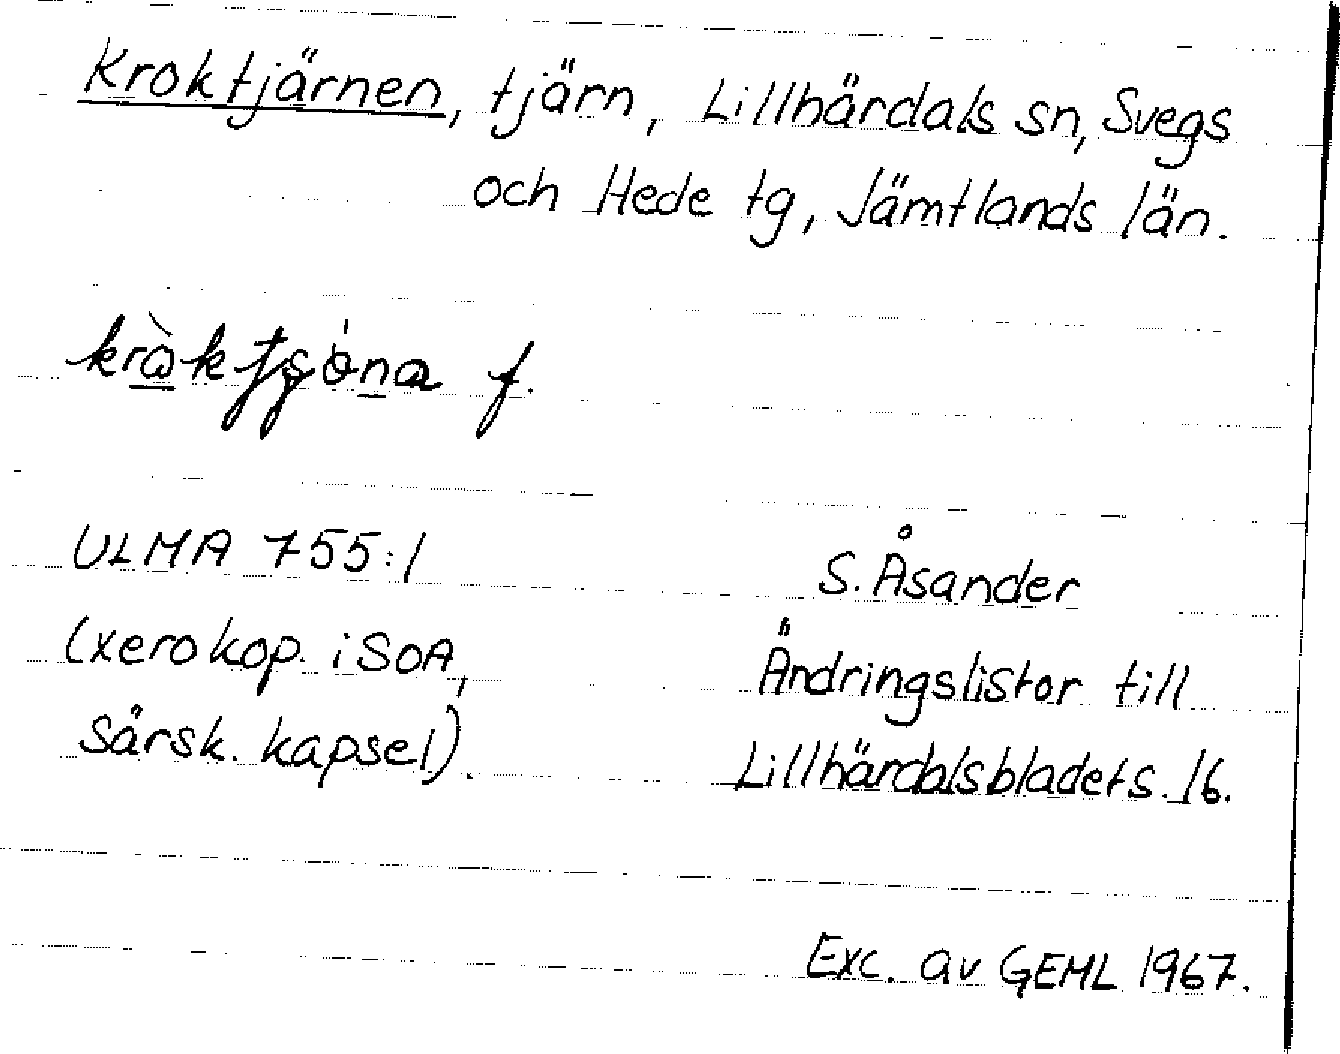 Kroktjärnen, tjärn, Lillhärdals sn, Svegs
och Hede tg, Jämtlands län.
f.
ULMA 755:1
S. Åsander
(xerokop. i SOA,
Ändringslistor till
särsk. kapsel).
Lillhärdalsbladet s. 16.
Exc. av GEML 1967.